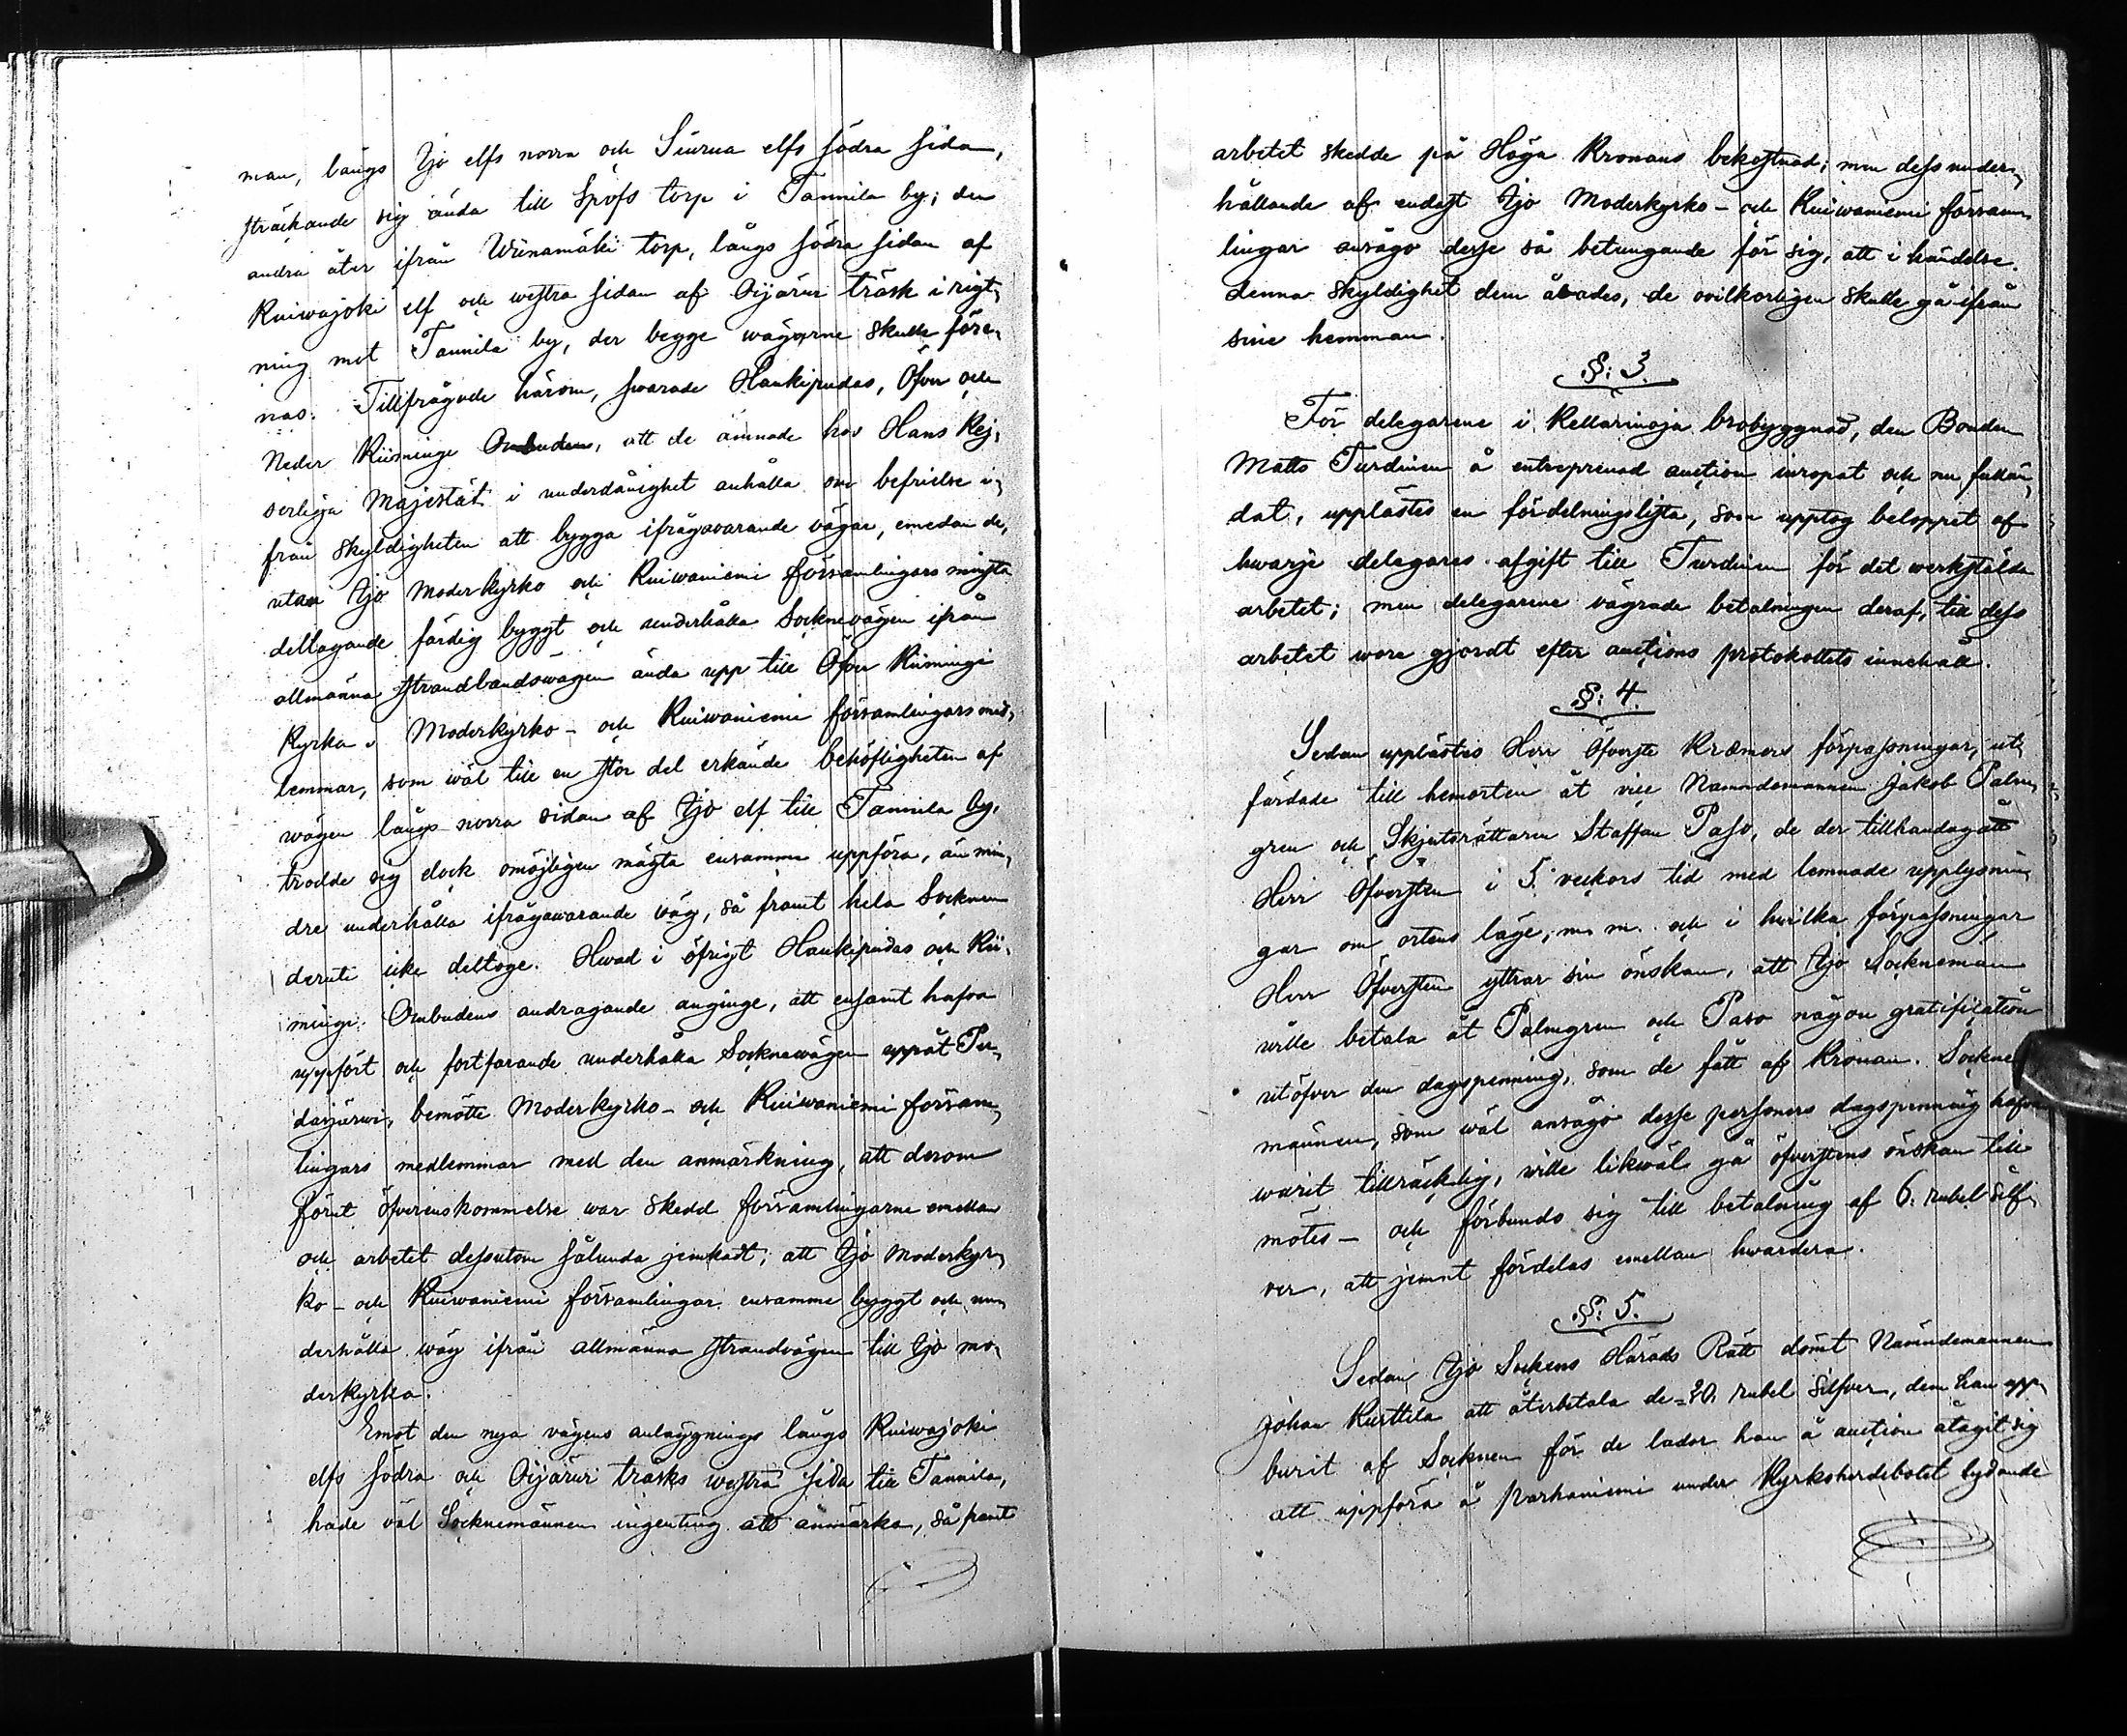 man, långs Ijo elfs norra och Siurua elfs södra sida,
sträckande sig ända till Spofs torp i Tannila by; den
andra åter ifrån Wiinamäki torp, långs södra sidan af
Kuiwajoki elf och westra sidan af Oijärwi träsk i rigt,
ning mot Tannila by, der begge wägarne skulle före,
nas. Tillfrågade härom, swarade Haukipudas, Öfver och
Neder Kiiminge Ombuden, att de ämnade hos Hans Kej,
serliga Majestät i underdånighet anhålla om befrielse i,
från skyldigheten att bygga ifrågavarande vägar, emedan de,
utan Ijo Moderkyrko och Kuiwaniemi församlingars mingsta
deltagande färdig byggt och underhålla Socknevägen ifrån
allmänna strandlandswägen ända upp till Öfver Kiiminge
Kyrka. Moderkyrko- och Kuiwaniemi församlingars med,
lemmar, som wäl till en stor del erkände behöfligheten af
wägen långs norra sidan af Ijo elf till Tannila by,
trodde sig dock omöjligen mägta ensamme uppföra, än min,
dre underhålla ifrågawarande wäg, så framt hela Socknen
deruti icke deltoge. Hwad i öfrigt Haukipudas och Kii,
minge Ombudens andragande anginge, att ensamt hafva
uppfört och fortfarande underhålla Socknewägen uppåt Pu,
dasjärwi, bemötte Moderkyrko- och Kuiwaniemi försam,
lingars medlemmar med den anmärkning, att derom
förut öfverenskommelse war skedd församlingarne emellan
och arbetet dessutom sålunda jemkadt, att Ijo Moderkyr,
ko- och Kuiwaniemi församlingar ensamme byggt och un,
derhålla wäg ifrån allmänna strandvägen till Ijo mo,
derkyrka.
Emot den nya vägens anläggnings långs Kuiwajoki
elfs södra och Oijärwi träsks westra sida till Tannila,
hade väl Socknemännen ingenting att anmärka, så framt
arbetet skedde på Höga Kronans bekostnad; men dess under,
hållande af endast Ijo Moderkyrko- och Kuiwaniemi försam,
lingar ansågo desse så betungande för sig, att i händelse
denna skyldighet dem ålades, de ovilkorligen skulle gå ifrån
sine hemman.
§: 3.
För delegarene i Kellarinoja brobyggnad, den Bonden
Matts Turdinen å entreprenad auction inropat och nu fullän,
dat, upplästes en fördelningslista, som upptog beloppet af
hwarje delegares afgift till Turdinen för det werkstälda
arbetet; men delegarene vägrade betalningen deraf, till dess
arbetet wore gjordt efter auctions protokollets innehåll.
§: 4.
Sedan upplästes Herr Öfverste Kræmers förpassningar, ut,
färdade till hemorten åt vice Nämndemannen Jakob Palm,
gren och Skjutsrättaren Staffan Paso, de der tillhandagått
Herr Öfversten i 5. veckors tid med lemnade upplysnin,
gar om ortens läge, m. m. och i hwilka förpassningar
Herr Öfversten yttrar sin önskan, att Ijo Sockneman
wille betala åt Palmgren och Paso någon gratification
utöfver den dagspenning, som de fått af Kronan. Sockne
männen, som wäl ansågo desse personers dagspenning hafva
warit tillräcklig, wille likwäl gå öfverstens önskan till
mötes- och förbundo sig till betalning af 6. rubel silf,
ver, att jemnt fördelas emellan hwardera.
§: 5.
Sedan Ijo Sockens Härads Rätt dömt Nämndemannen
Johan Kurttila att återbetala de=20. rubel silfver, dem han upp,
burit af Socknen för de lador han å auction åtagit sig
att uppföra å Parhaniemi under Kyrkoherdebolet lydande